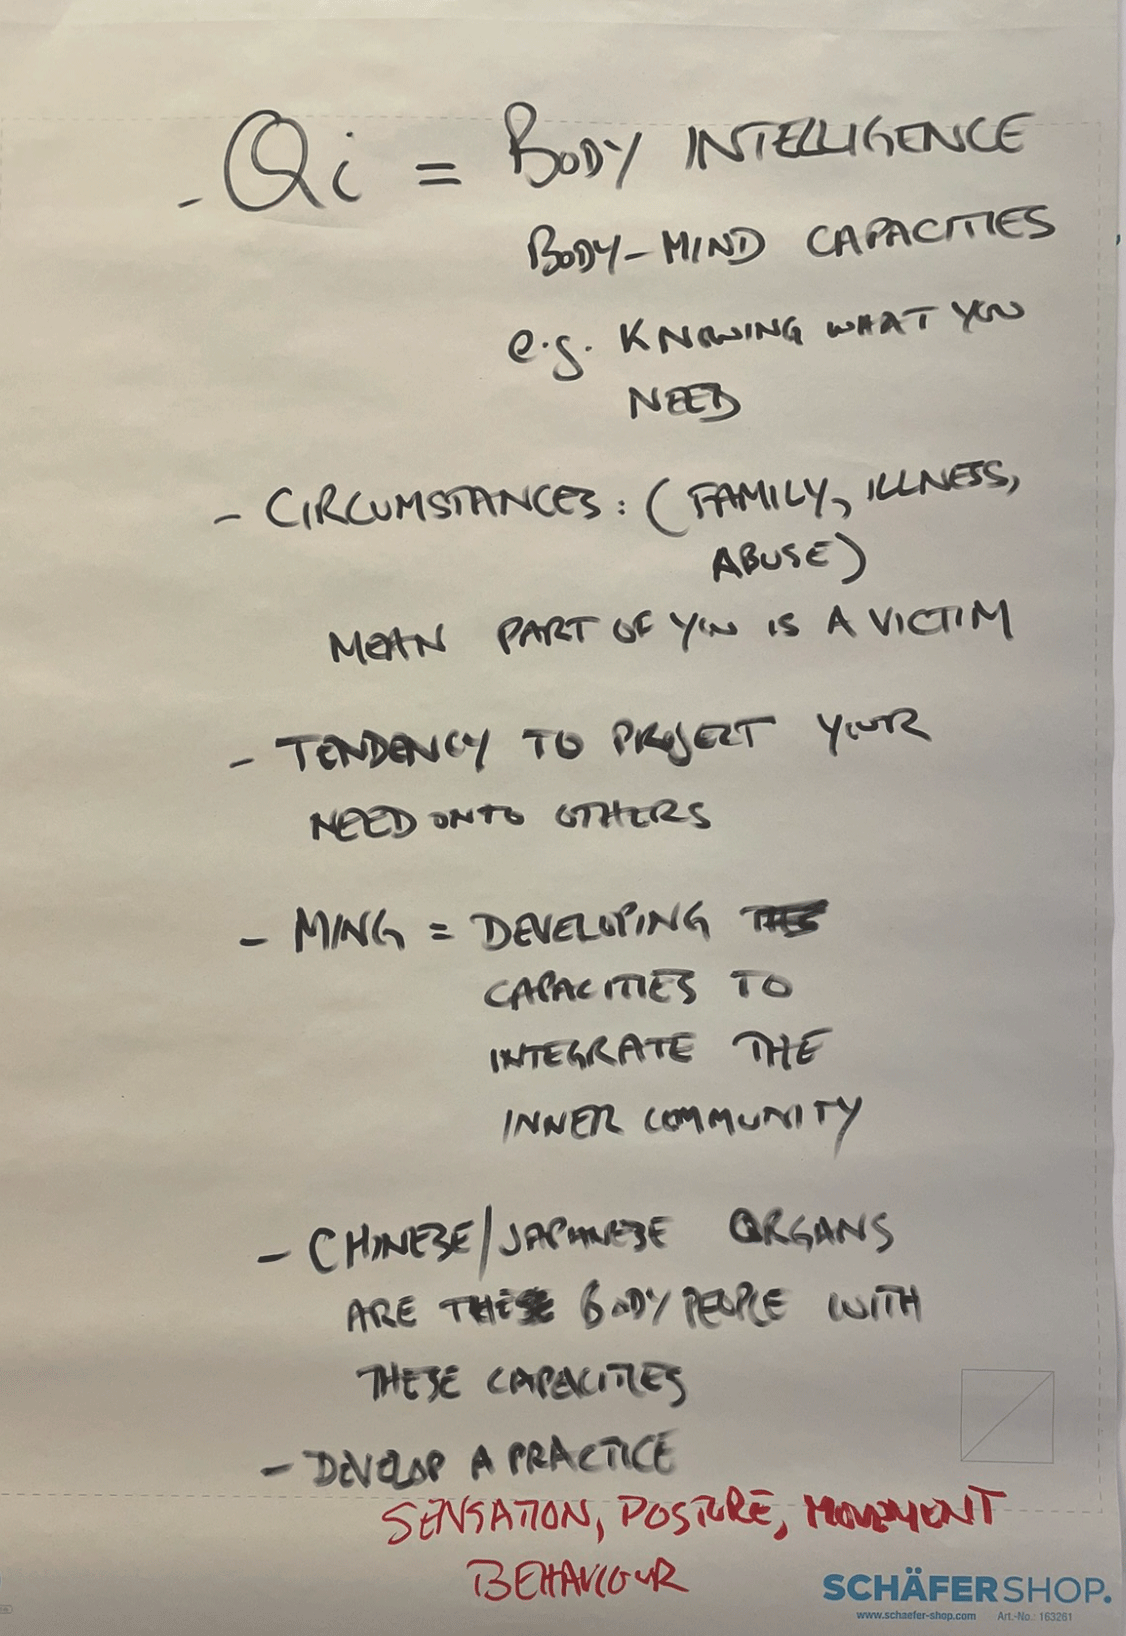 - Qi = BODY INTELLIGENCE
BODY-MIND CAPACITIES
e.g. KNOWING WHAT YOU
NEED
- CIRCUMSTANCES: (FAMILY, ILLNESS,
ABUSE)
MEAN PART OF YOU IS A VICTIM
- TENDENCY TO PROJECT YOUR
NEED ONTO OTHERS
- MING = DEVELOPING
CAPACITIES TO
INTEGRATE THE
INNER COMMUNITY
- CHINESE/JAPANESE ORGANS
ARE THESE BODY PEOPLE WITH
THESE CAPACITIES
- DEVELOP A PRACTICE
SENSATION, POSTURE, MOVEMENT
BEHAVIOUR
SCHÄFER SHOP.
www.schaefer-shop.com Art.-No.: 163261